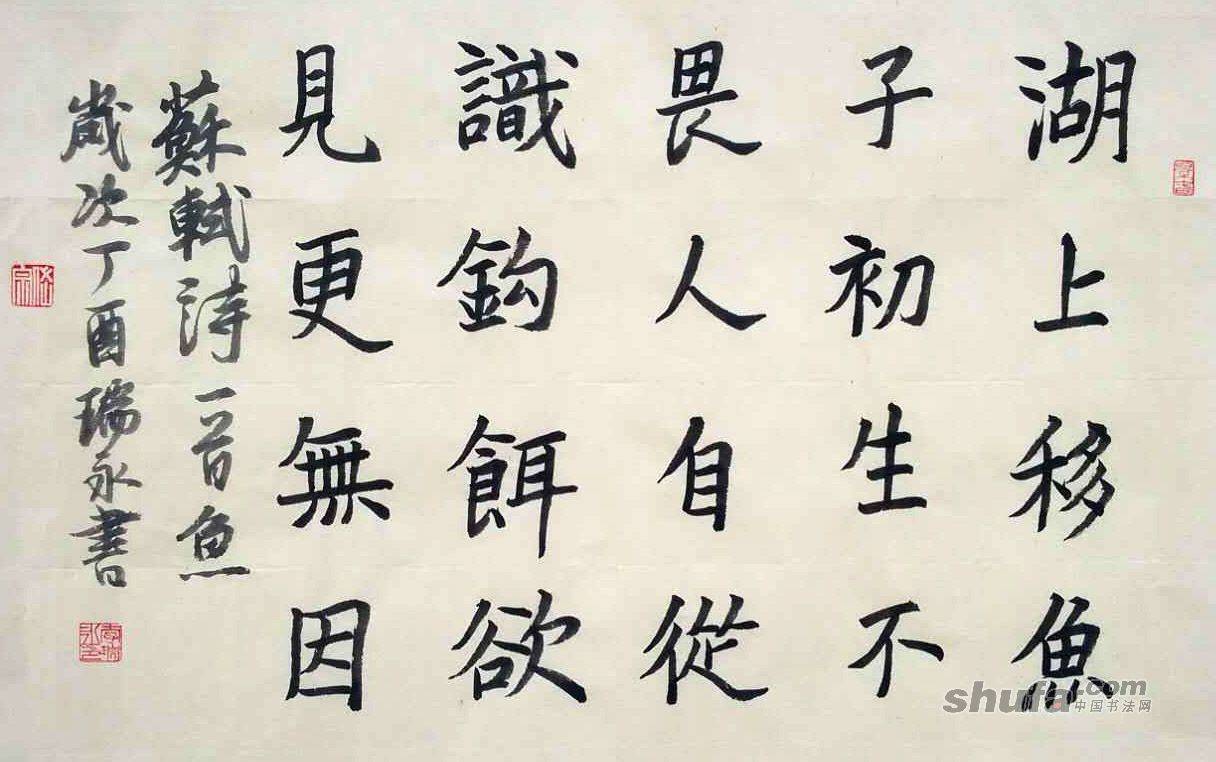 湖上移魚
子初生不
畏人自從
識鈎餌欲
見更無因
蘇軾詩一首魚
歲次丁酉瑞永書
shufa.com
中国书法网